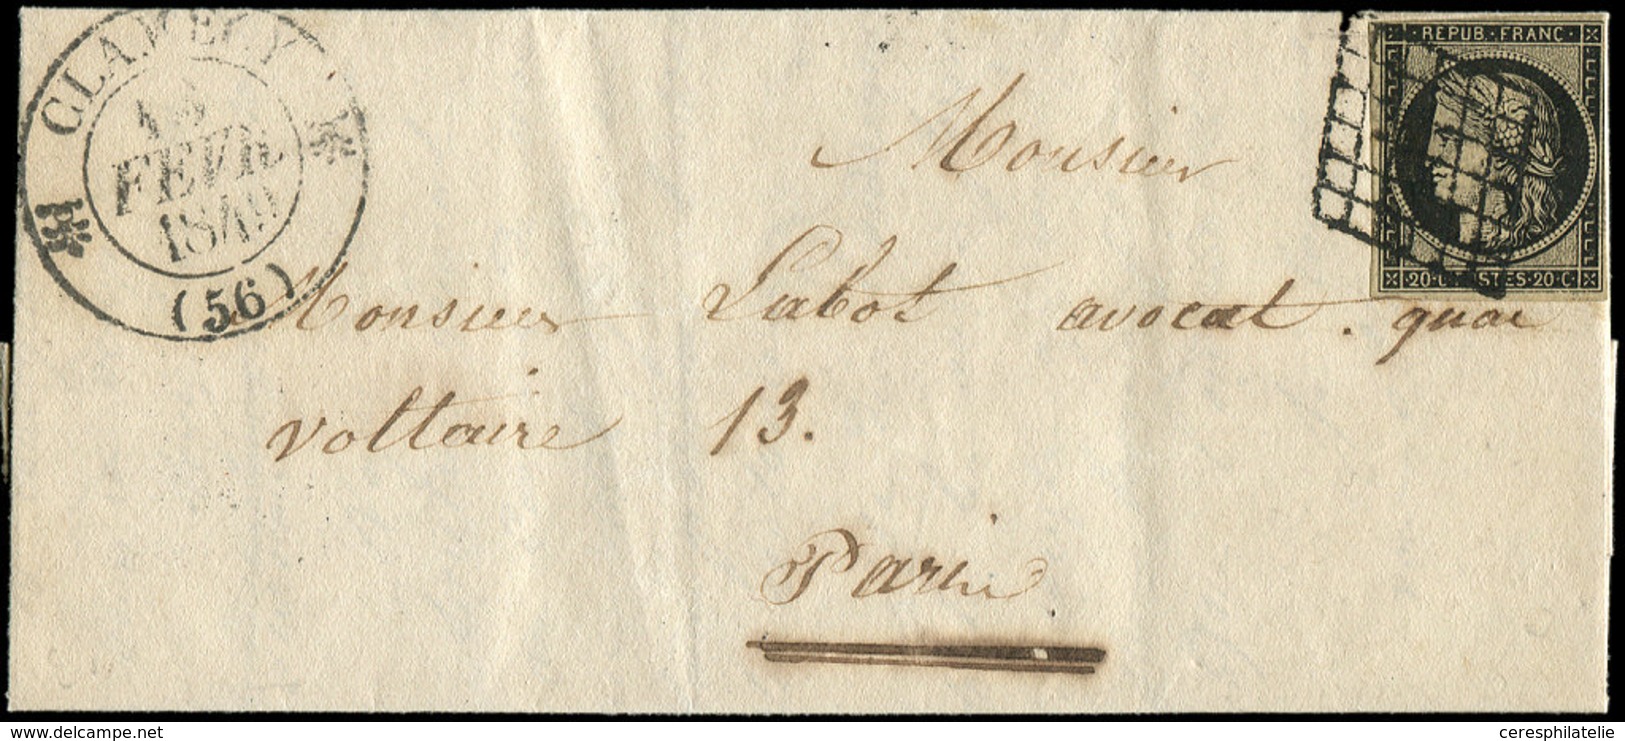 CLAMECY
FEVR.
1849
(56)
REPUB. FRANC.
20·C POSTES·20·C
Monsieur
Monsieur Labot avocat. quai
voltaire 13.
Paris
ceresphilatelie